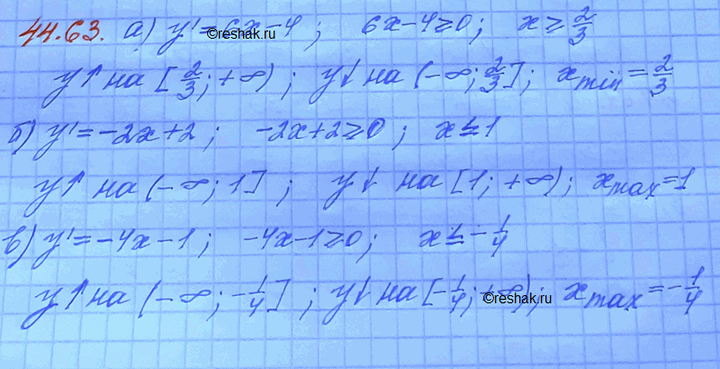 44.63. а) y' = 6x-4 ; 6x-4≥0 ; x ≥ 2/3
y↑ на [2/3; +∞) ; y↓ на (-∞; 2/3] ; x min = 2/3
б) y' = -2x+2 ; -2x+2≥0 ; x ≤ 1
y↑ на (-∞; 1] ; y↓ на [1; +∞) ; x max = 1
в) y' = -4x-1 ; -4x-1≥0 ; x ≤ -1/4
y↑ на (-∞; -1/4] ; y↓ на [-1/4; +∞) ; x max = -1/4
©reshak.ru
©reshak.ru